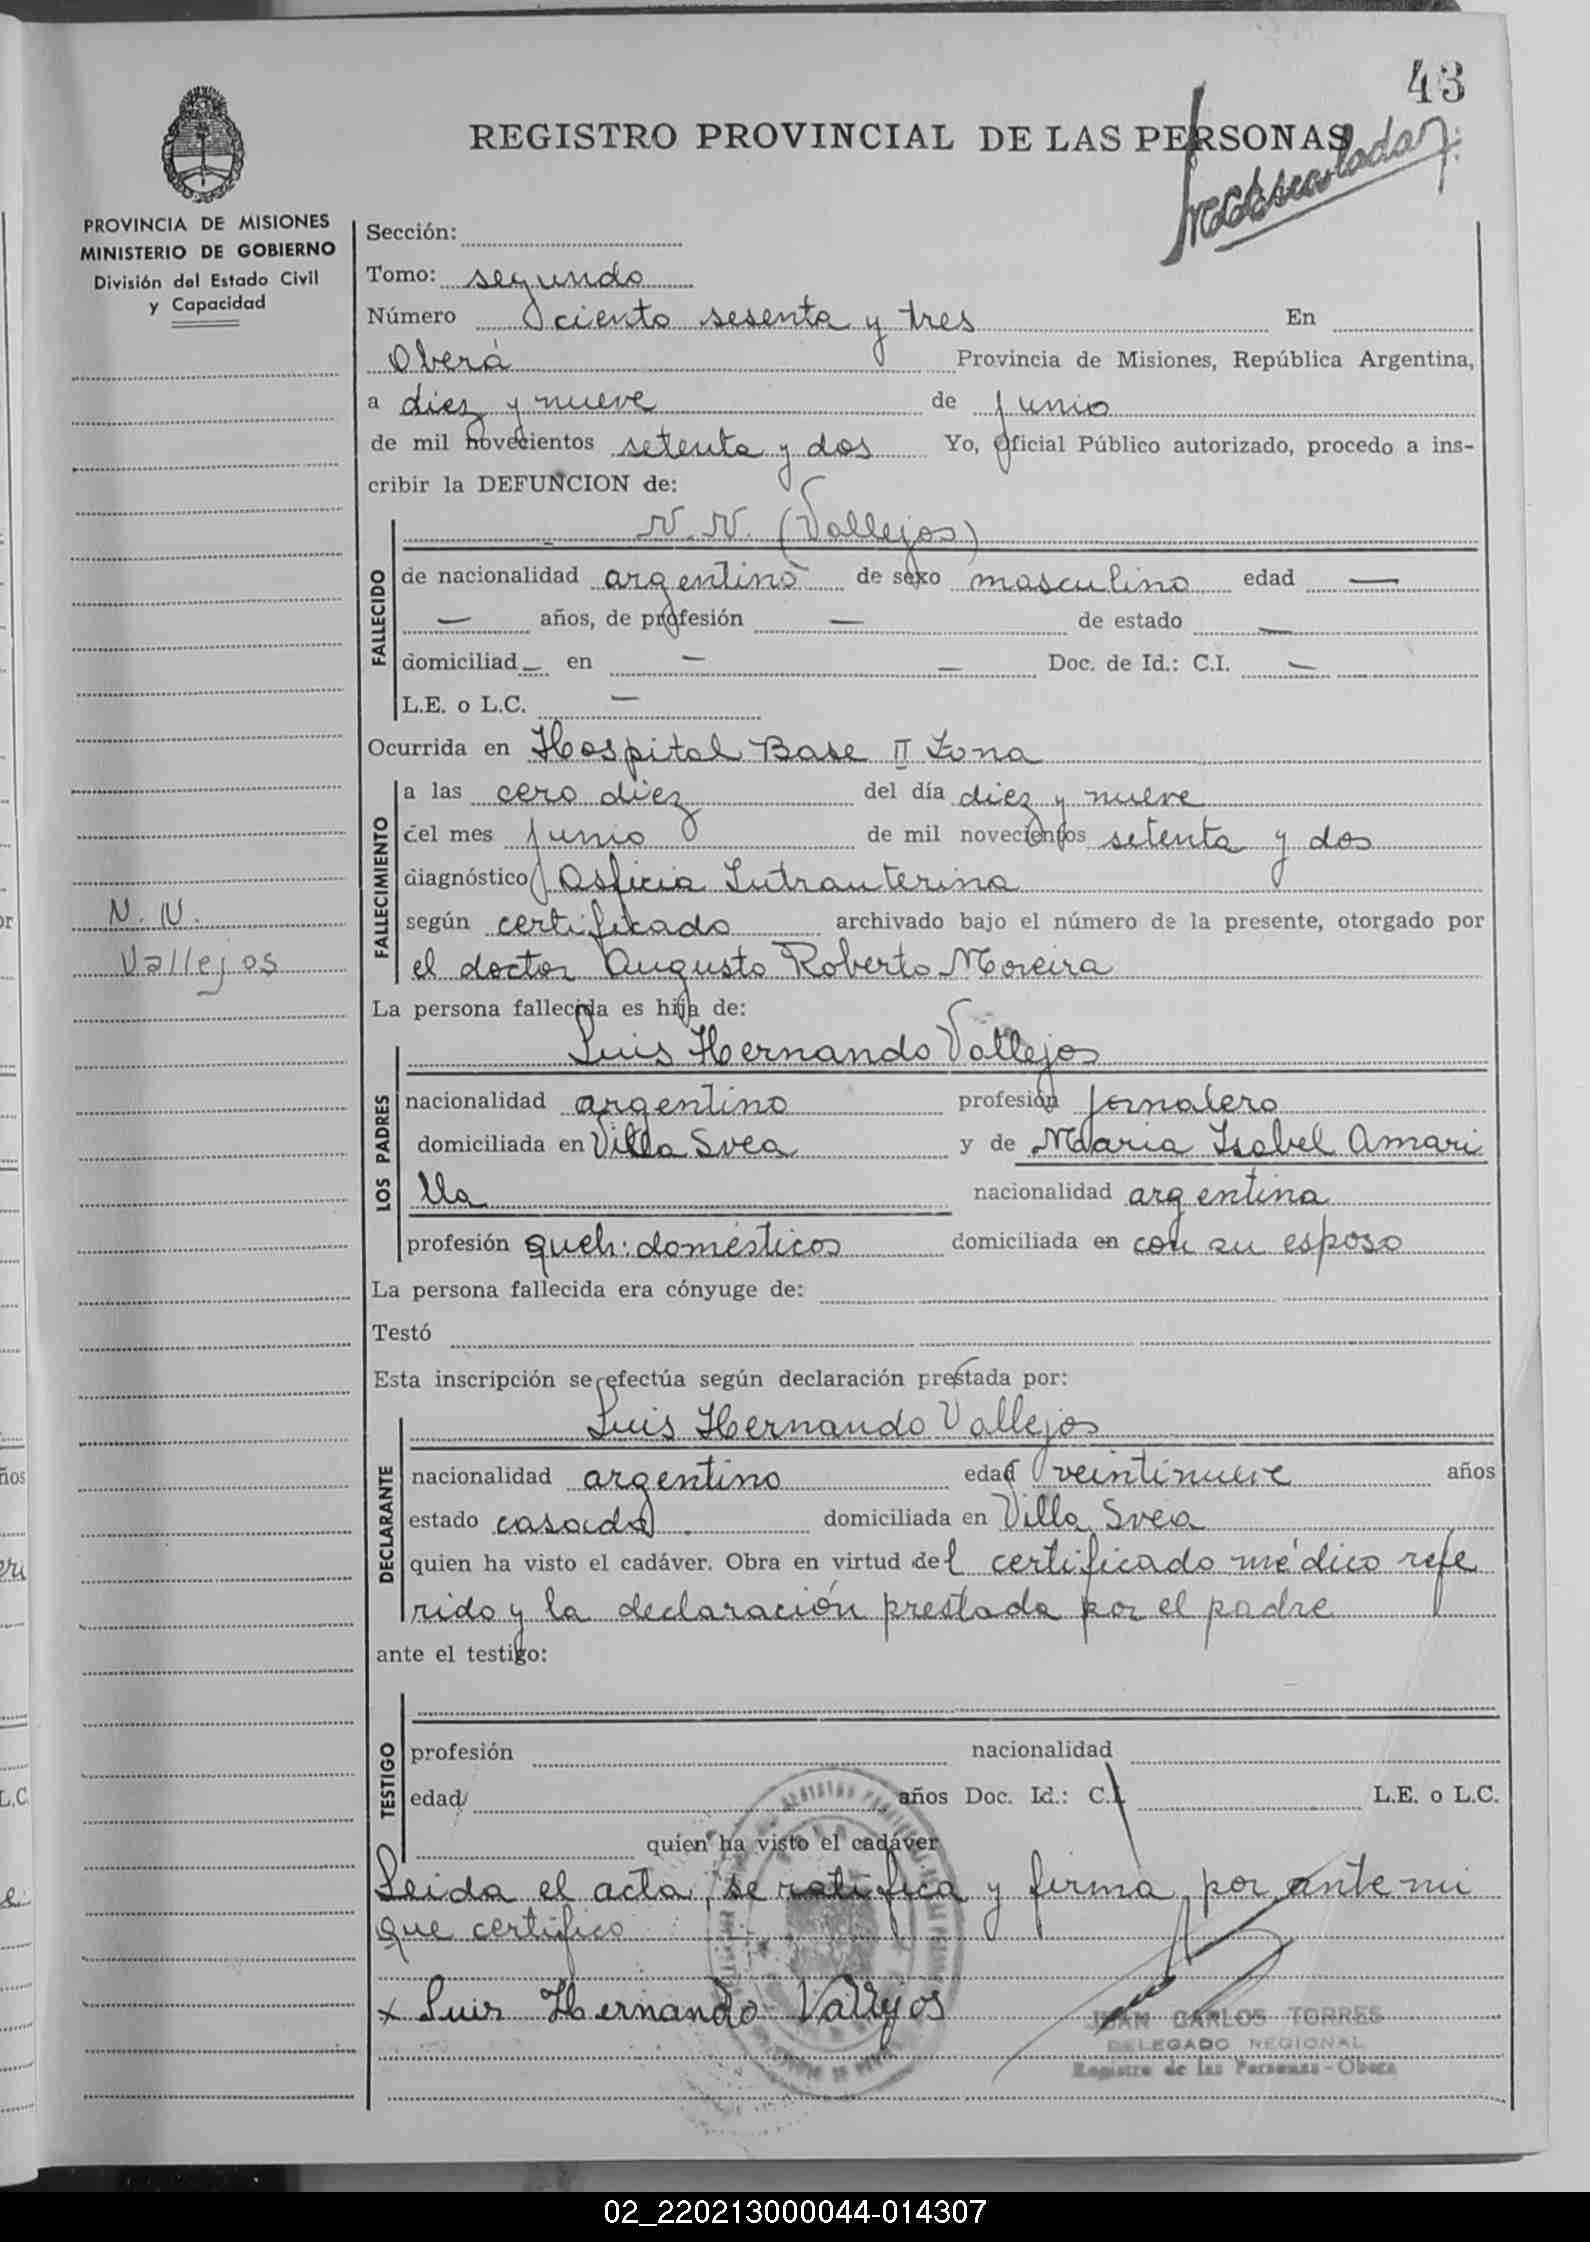 43
REGISTRO PROVINCIAL DE LAS PERSONAS
PROVINCIA DE MISIONES
MINISTERIO DE GOBIERNO
División del Estado Civil
y Capacidad
Sección:
Tomo: segundo
Número ciento sesenta y tres En
Oberá Provincia de Misiones, República Argentina,
a diez y nueve de junio
de mil novecientos setenta y dos Yo, Oficial Público autorizado, procedo a ins-
cribir la DEFUNCION de:
N. N. (Vallejos)
FALLECIDO
de nacionalidad argentino de sexo masculino edad —
— años, de profesión — de estado —
domiciliad — en — — Doc. de Id.: C.I. —
L.E. o L.C. —
Ocurrida en Hospital Base II Zona
FALLECIMIENTO
a las cero diez del día diez y nueve
del mes junio de mil novecientos setenta y dos
diagnóstico Asficia Intrauterina
según certificado archivado bajo el número de la presente, otorgado por
el doctor Augusto Roberto Moreira
N. N.
Vallejos
La persona fallecida es hija de:
Luis Hernando Vallejos
LOS PADRES
nacionalidad argentino profesión jornalero
domiciliada en Villa Svea y de Maria Isabel Amari
lla nacionalidad argentina
profesión queh: domésticos domiciliada en con su esposo
La persona fallecida era cónyuge de:
Testó
Esta inscripción se efectúa según declaración prestada por:
Luis Hernando Vallejos
DECLARANTE
nacionalidad argentino edad veintinueve años
estado casado. domiciliada en Villa Svea
quien ha visto el cadáver. Obra en virtud del certificado médico refe
rido y la declaración prestada por el padre
ante el testigo:
TESTIGO
profesión nacionalidad
edad años Doc. Id.: C.I. L.E. o L.C.
quien ha visto el cadáver
Leida el acta, se ratifica y firma, por ante mi
que certifico
x Luis Hernando Vallejos
JUAN CARLOS TORRES
DELEGADO REGIONAL
Registro de las Personas - Obera
02_220213000044-014307